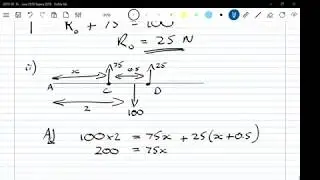 R₀ + 75 = 100
R₀ = 25 N
ii)
75
0.5
25
x
A
C
D
2
100
A) 100×2 = 75x + 25(x+0.5)
200 = 75x